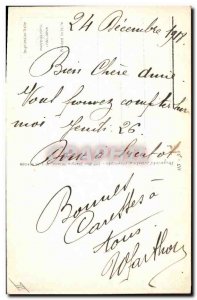 24 Décembre 1911
Bien Chère Amie
Vous pouvez compter sur
moi Jeudi 26
Donc à bientôt
Bonnes
Caresses à
tous